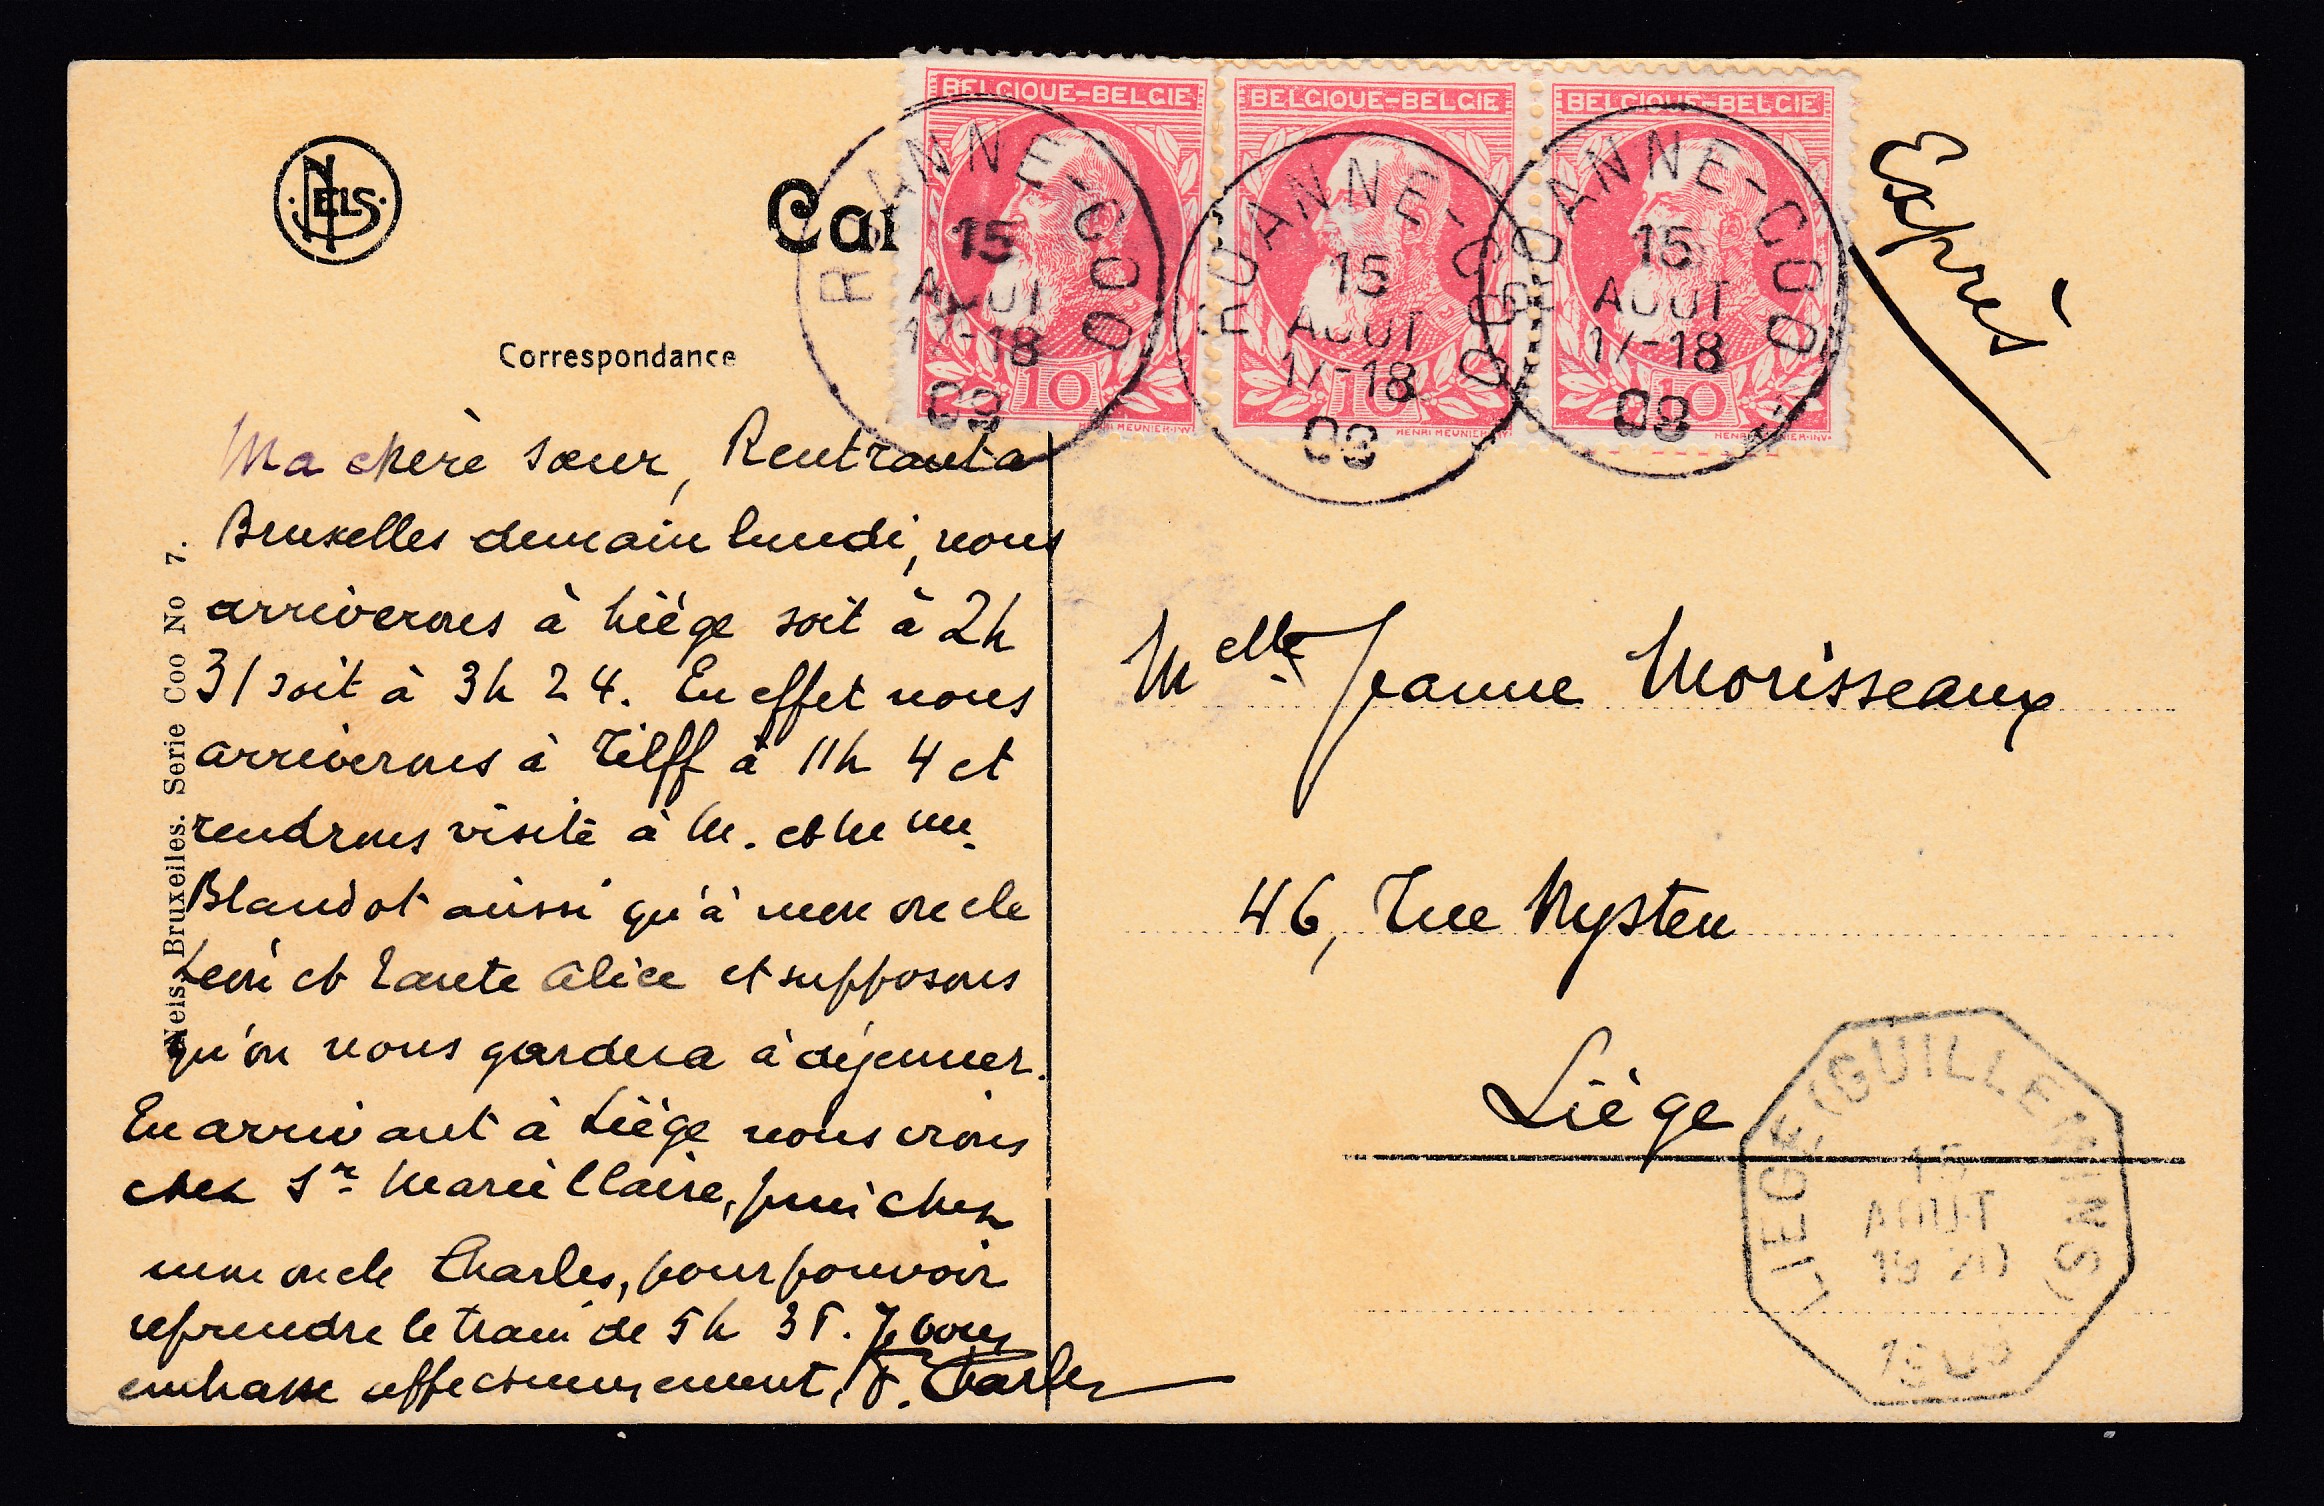 NELS
Car
Correspondance
BELGIQUE-BELGIE
BELGIQUE-BELGIE
BELGIQUE-BELGIE
10
10
10
HENRI MEUNIER·INV·
HENRI MEUNIER·INV·
HENRI MEUNIER·INV·
ROANNE-COO
15
AOUT
17-18
09
ROANNE-COO
15
AOUT
17-18
09
ROANNE-COO
15
AOUT
17-18
09
Exprès
Ma chère sœur, Rentrant à
Bruxelles demain lundi, nous
arriverons à Liège soit à 2h
31 soit à 3h 24. En effet nous
arriverons à Tilff à 11h 4 et
rendrons visite à M. et Mme.
Blandot aussi qu'à mon oncle
Léon et tante Alice et supposons
qu'on nous gardera à déjeuner.
En arrivant à Liège nous irons
chez Sr Marie Claire, puis chez
mon oncle Charles, pour pouvoir
reprendre le train de 5h 35. Je vous
embrasse affectueusement, Charles
Nels, Bruxelles. Serie Coo No 7.
Melle Jeanne Morisseaux
46, rue Nysten
Liège
LIEGE (GUILLEMINS)
15
AOUT
19-20
1909